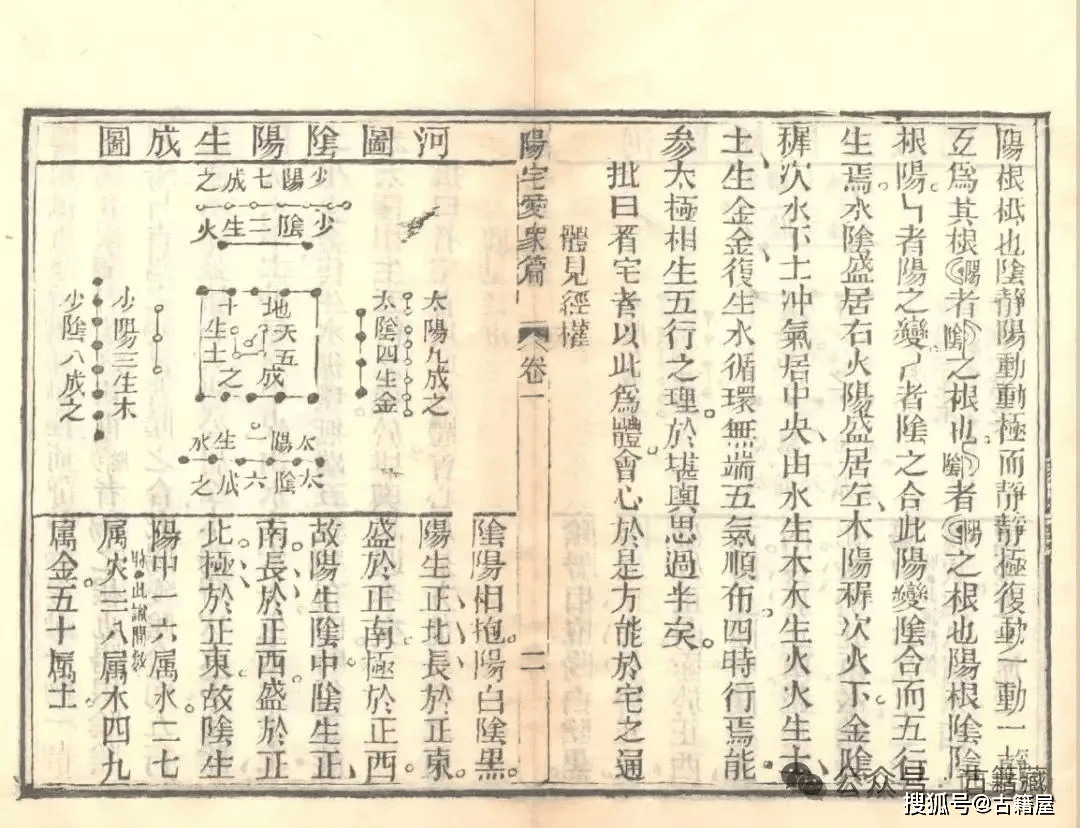 陽根柢也陰靜陽動動極而靜靜極復動一動一
互爲其根陽者陰之根也陰者陽之根也陽根陰陰
根陽乀者陽之變丿者陰之合此陽變陰合而五行
生焉水陰盛居右火陽盛居左木陽穉次火下金陰
穉次水下土沖氣居中央由水生木木生火火生土
土生金金復生水循環無端五氣順布四時行焉能
參太極相生五行之理於堪輿思過半矣
批曰看宅者以此爲體會心於是方能於宅之通
體見經權
陽宅愛衆篇 卷一 二
河圖陰陽生成圖
少陽七成之
少陰二生火
太陽九成之
太陰四生金
地天五成
十生土之
少陽三生木
少陰八成之
太陽一生水
太陰六成之
陰陽相抱陽白陰黑
陽生正北長於正東
盛於正南極於正西
故陽生陰中陰生正
南長於正西盛於正
北極於正東故陰生
陽中一六屬水二七
属火三八属木四九
属金五十属土
公众号·古籍藏
搜狐号@古籍屋